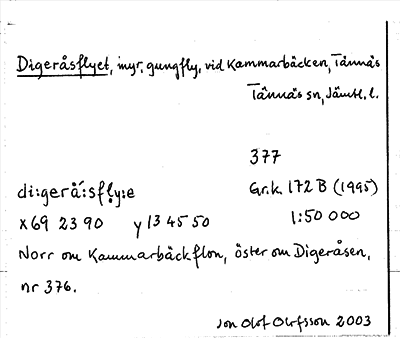 Digeråsflyet, myr, gungfly, vid Kammarbäcken, Tännäs
Tännäs sn, Jämtl. l.
377
di:gerå´:sfly:e Gr.k. 172 B (1995)
x 69 23 90 y 13 45 50 1:50 000
Norr om Kammarbäckflon, öster om Digeråsen,
nr 376.
Jon Olof Olofsson 2003